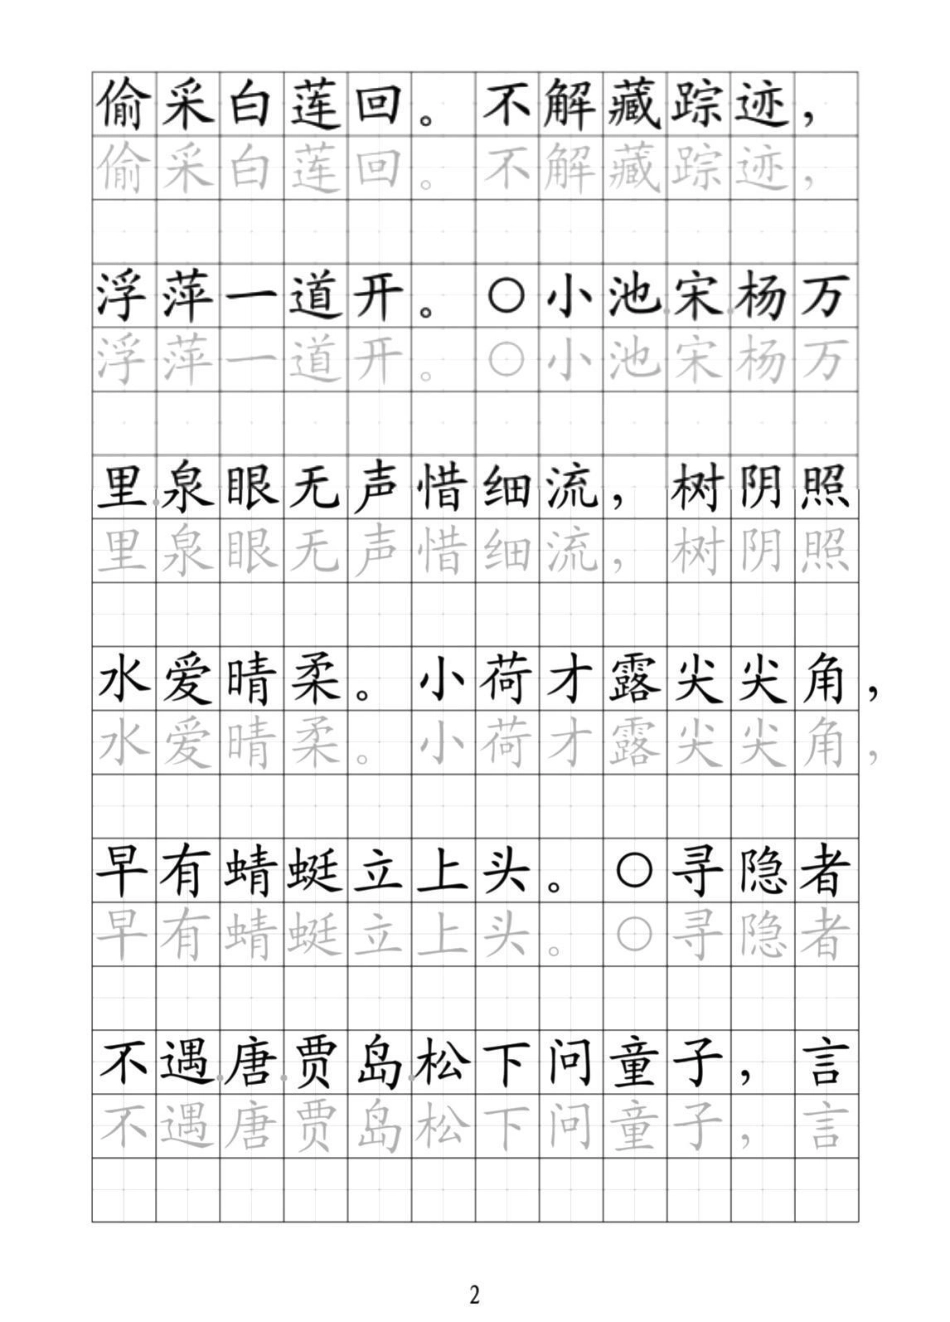 偷采白莲回。不解藏踪迹，
偷采白莲回。不解藏踪迹，
浮萍一道开。○小池宋杨万
浮萍一道开。○小池宋杨万
里泉眼无声惜细流，树阴照
里泉眼无声惜细流，树阴照
水爱晴柔。小荷才露尖尖角，
水爱晴柔。小荷才露尖尖角，
早有蜻蜓立上头。○寻隐者
早有蜻蜓立上头。○寻隐者
不遇唐贾岛松下问童子，言
不遇唐贾岛松下问童子，言
2